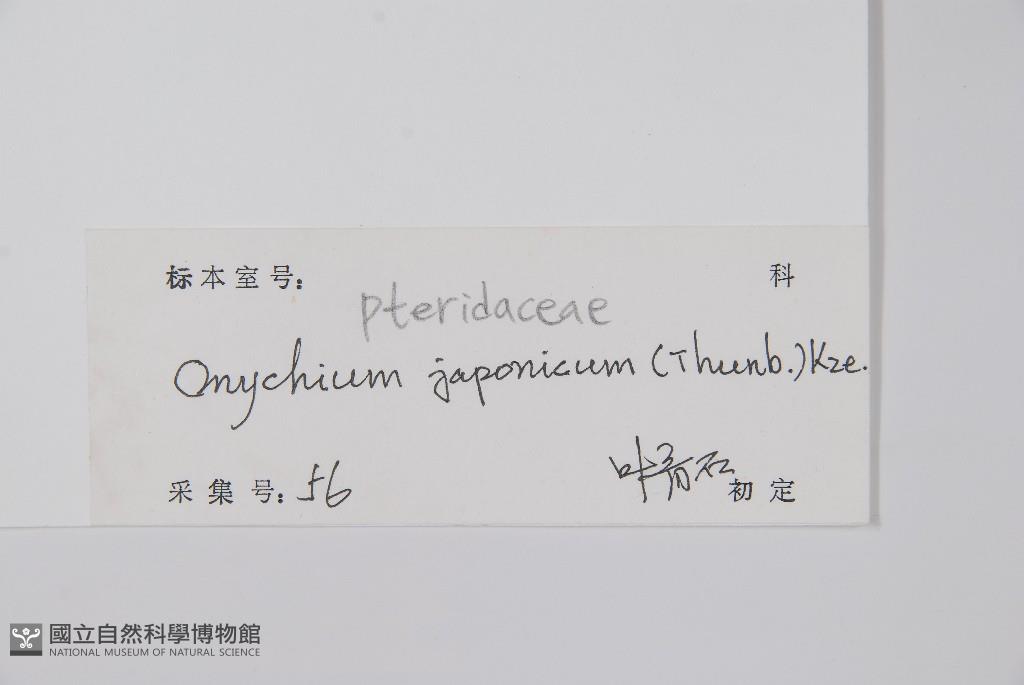 标本室号: 科
pteridaceae
Onychium japonicum (Thunb.) Kze.
采集号: 56 叶青石 初定
國立自然科學博物館
NATIONAL MUSEUM OF NATURAL SCIENCE